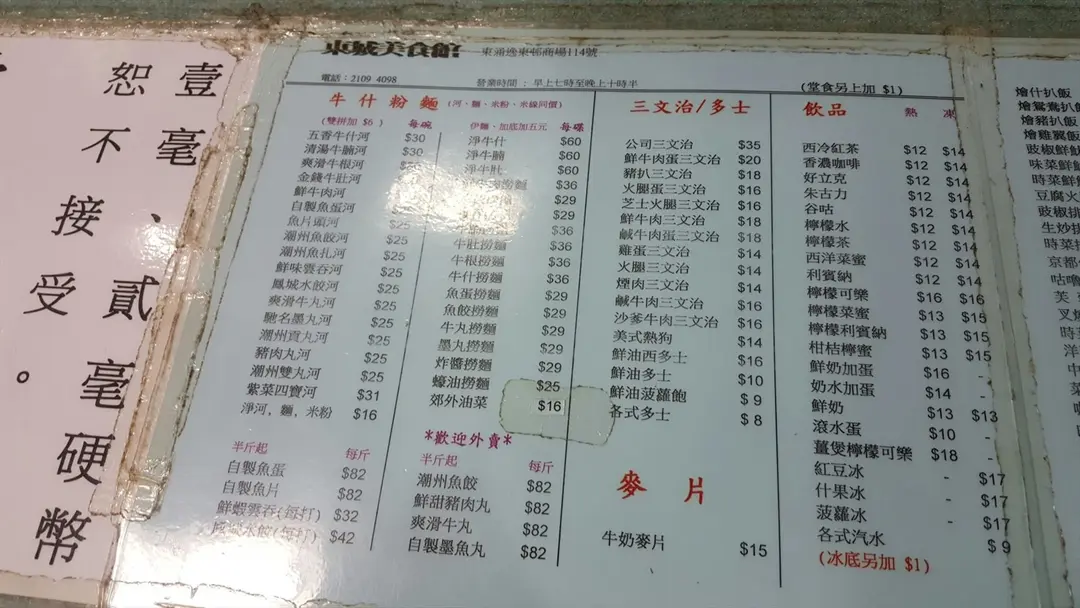 壹毫、貳毫硬幣
恕不接受。
東城美食館 東涌逸東邨商場114號
電話：2109 4098 發業時間：早上七時至晚上十時半 (堂食另上加 $1)
牛什粉麵 (河、麵、米粉、米線同價)
(雙拼加 $6 ) 每碗
五香牛什河 $30
清湯牛腩河 $30
爽滑牛根河
金錢牛肚河
鮮牛肉河
自製魚蛋河
魚片頭河
潮州魚餃河 $25
潮州魚扎河 $25
鮮味雲吞河 $25
鳳城水餃河 $25
爽滑牛丸河 $25
馳名墨丸河 $25
潮州貢丸河 $25
豬肉丸河 $25
潮州雙丸河 $25
紫菜四寶河 $31
淨河，麵，米粉 $16
半斤起 每斤
自製魚蛋 $82
自製魚片 $82
鮮蝦雲吞(每打) $32
水餃(每打) $42
伊麵、加底加五元 每碟
淨牛什 $60
淨牛腩 $60
淨牛肚 $60
撈麵 $36
$29
$29
撈麵 $36
牛肚撈麵 $36
牛根撈麵 $36
牛什撈麵 $36
魚蛋撈麵 $29
魚餃撈麵 $29
牛丸撈麵 $29
墨丸撈麵 $29
炸醬撈麵 $29
蠔油撈麵 $25
郊外油菜 $16
*歡迎外賣*
半斤起 每斤
潮州魚餃 $82
鮮甜豬肉丸 $82
爽滑牛丸 $82
自製墨魚丸 $82
三文治/多士
公司三文治 $35
鮮牛肉蛋三文治 $20
豬扒三文治 $18
火腿蛋三文治 $16
芝士火腿三文治 $16
鮮牛肉三文治 $18
鹹牛肉蛋三文治 $18
雞蛋三文治 $14
火腿三文治 $14
煙肉三文治 $14
鹹牛肉三文治 $16
沙爹牛肉三文治 $16
美式熱狗 $14
鮮油西多士 $16
鮮油多士 $10
鮮油菠蘿飽 $ 9
各式多士 $ 8
麥片
牛奶麥片 $15
飲品 熱 凍
西冷紅茶 $12 $14
香濃咖啡 $12 $14
好立克 $12 $14
朱古力 $12 $14
谷咕 $12 $14
檸檬水 $12 $14
檸檬茶 $12 $14
西洋菜蜜 $12 $14
利賓納 $12 $14
檸檬可樂 $16 $16
檸檬菜蜜 $13 $15
檸檬利賓納 $13 $15
柑桔檸蜜 $13 $15
鮮奶加蛋 $16 -
奶水加蛋 $14 -
鮮奶 $13 $13
滾水蛋 $10 -
薑煲檸檬可樂 $18 -
紅豆冰 - $17
什果冰 - $17
菠蘿冰 - $17
各式汽水 $ 9
(冰底另加 $1)
燴什扒飯
燴鴛鴦扒飯
燴豬扒飯
燴雞翼飯
豉椒鮮魷
味菜鮮魷
時菜鮮魷
豆腐火
豉椒排
生炒排
時菜
京都
咕嚕
芙
叉燒
洋
中